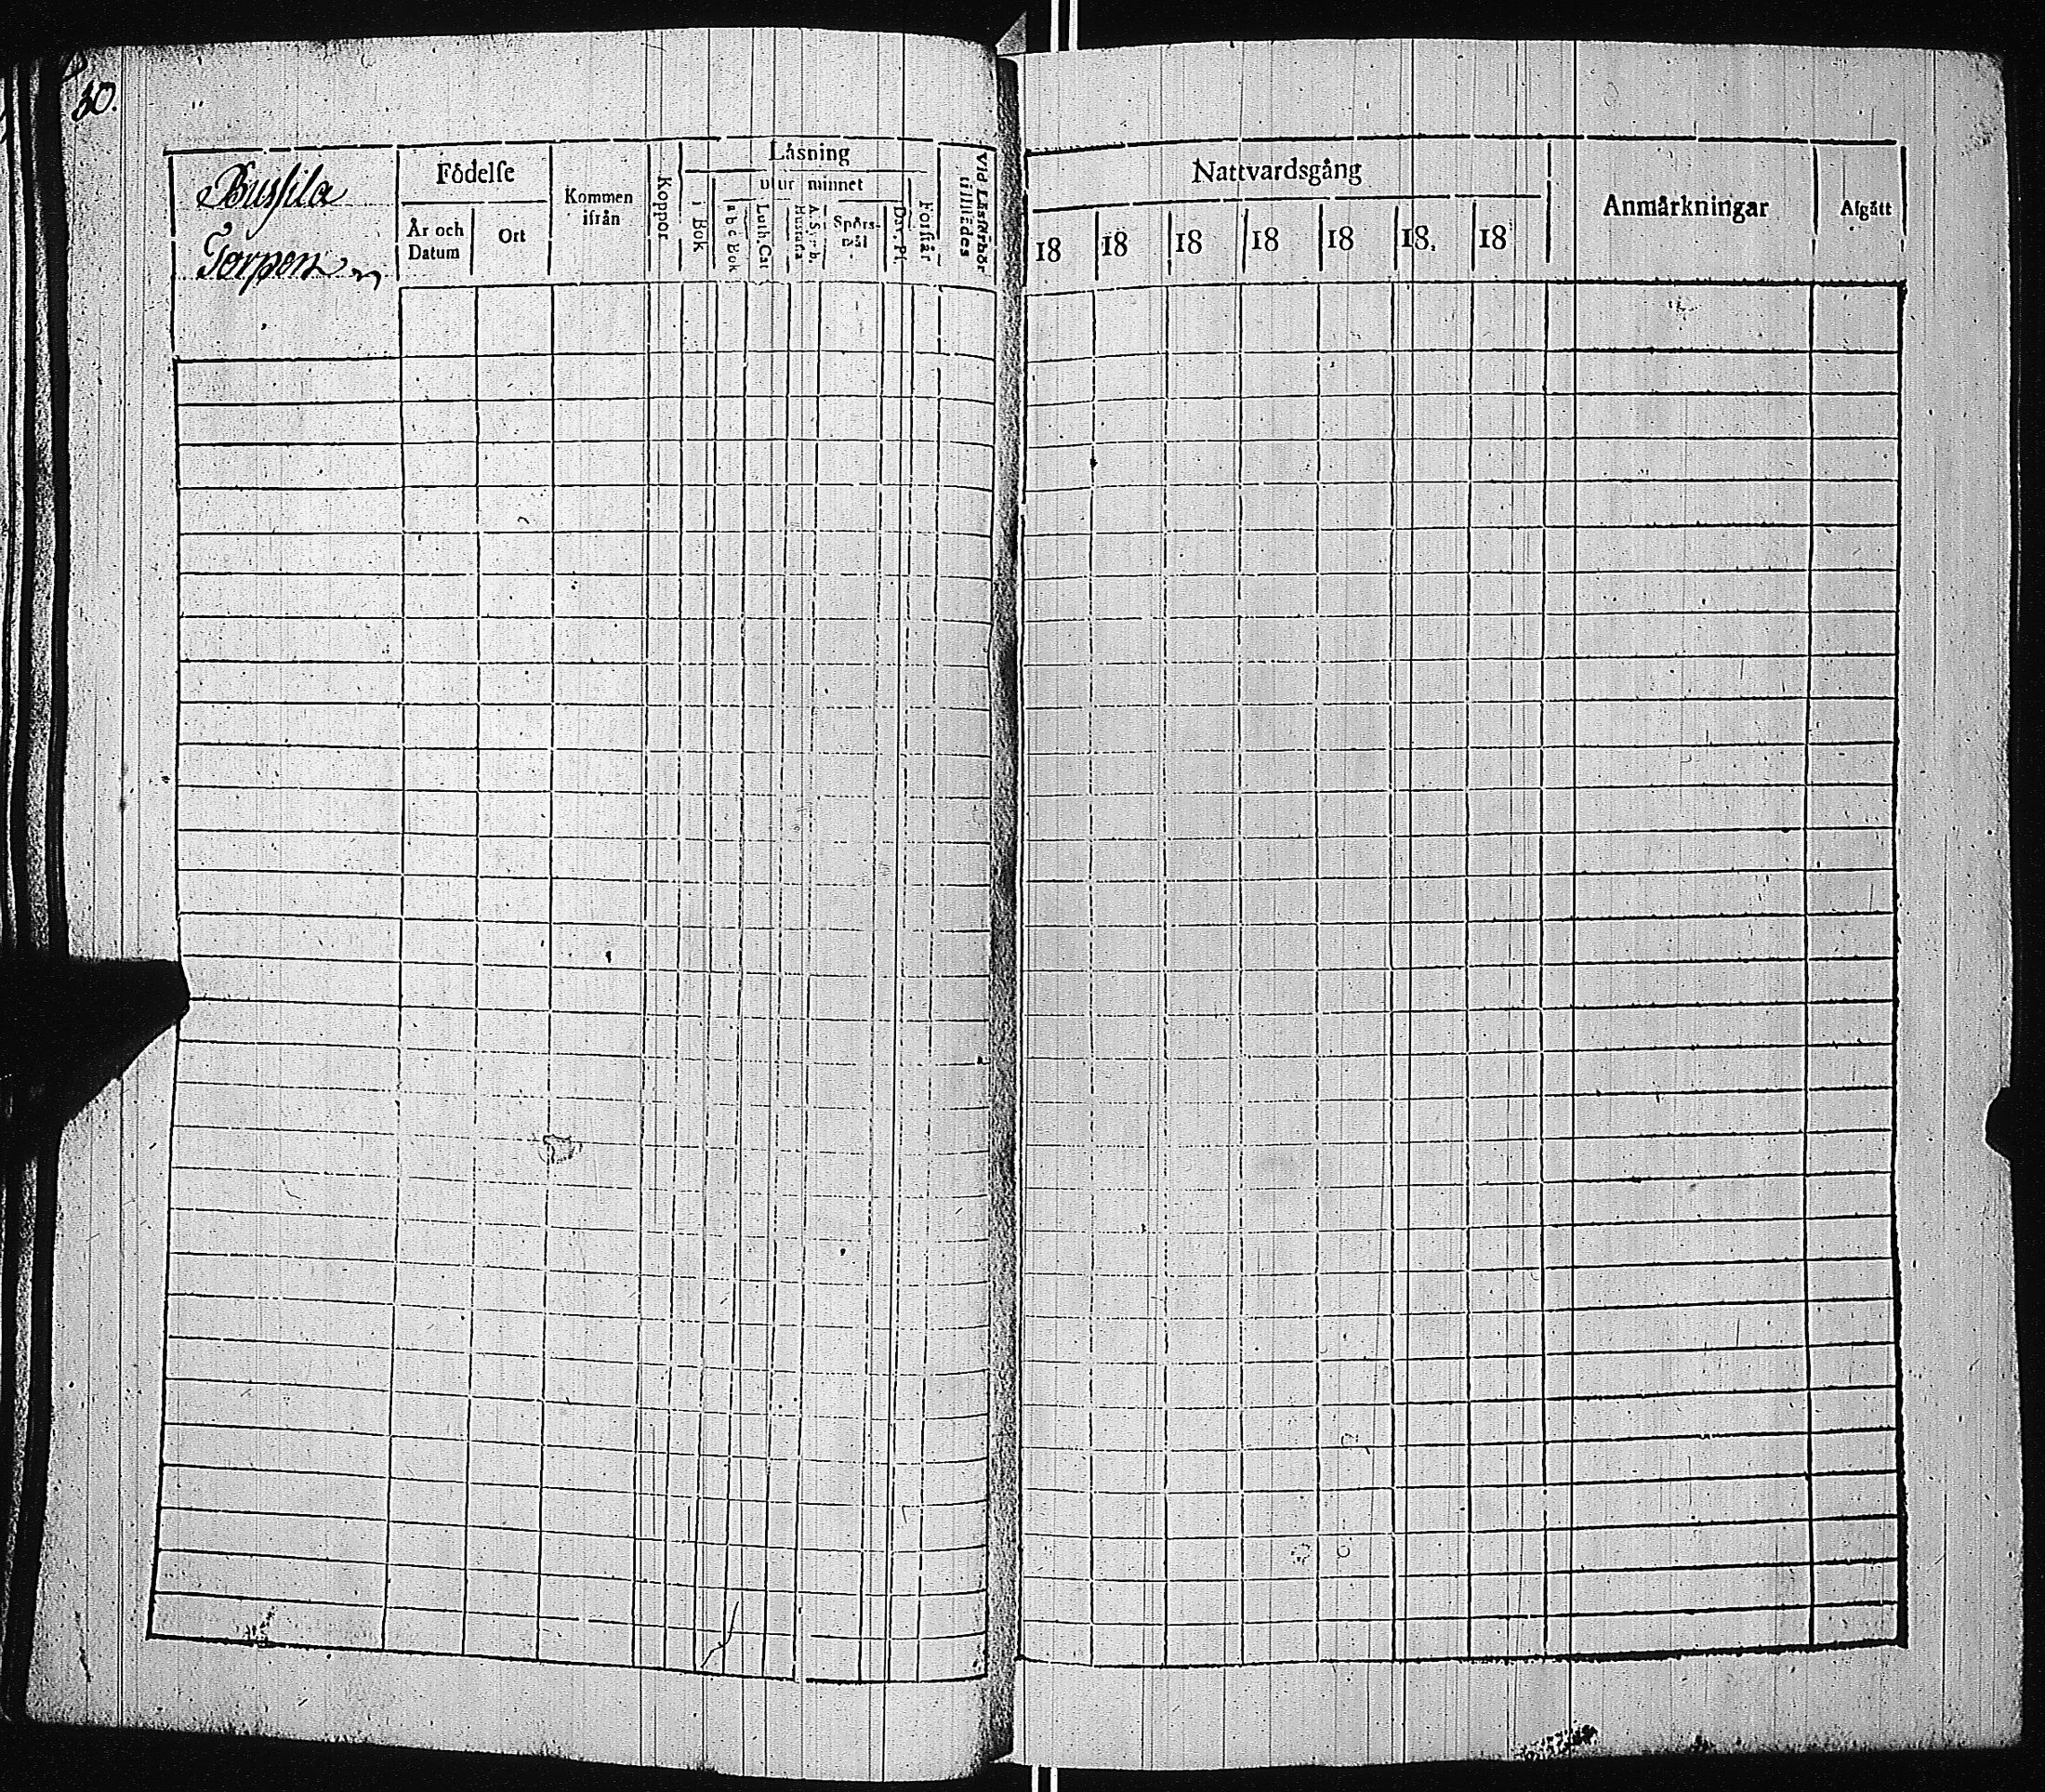 30.
Bussila
Torpen
Födelse
År och Datum
Ort
Kommen ifrån
Koppor
Läsning
i Bok
utur minnet
a b c Bok
Luth. Cat
Hustafla
A. Symb.
Spörs-mål
Dav. Ps.
Förstår
Vid Läsförhör tillstädes
Nattvardsgång
18 18 18 18 18 18. 18
Anmärkningar
Afgått